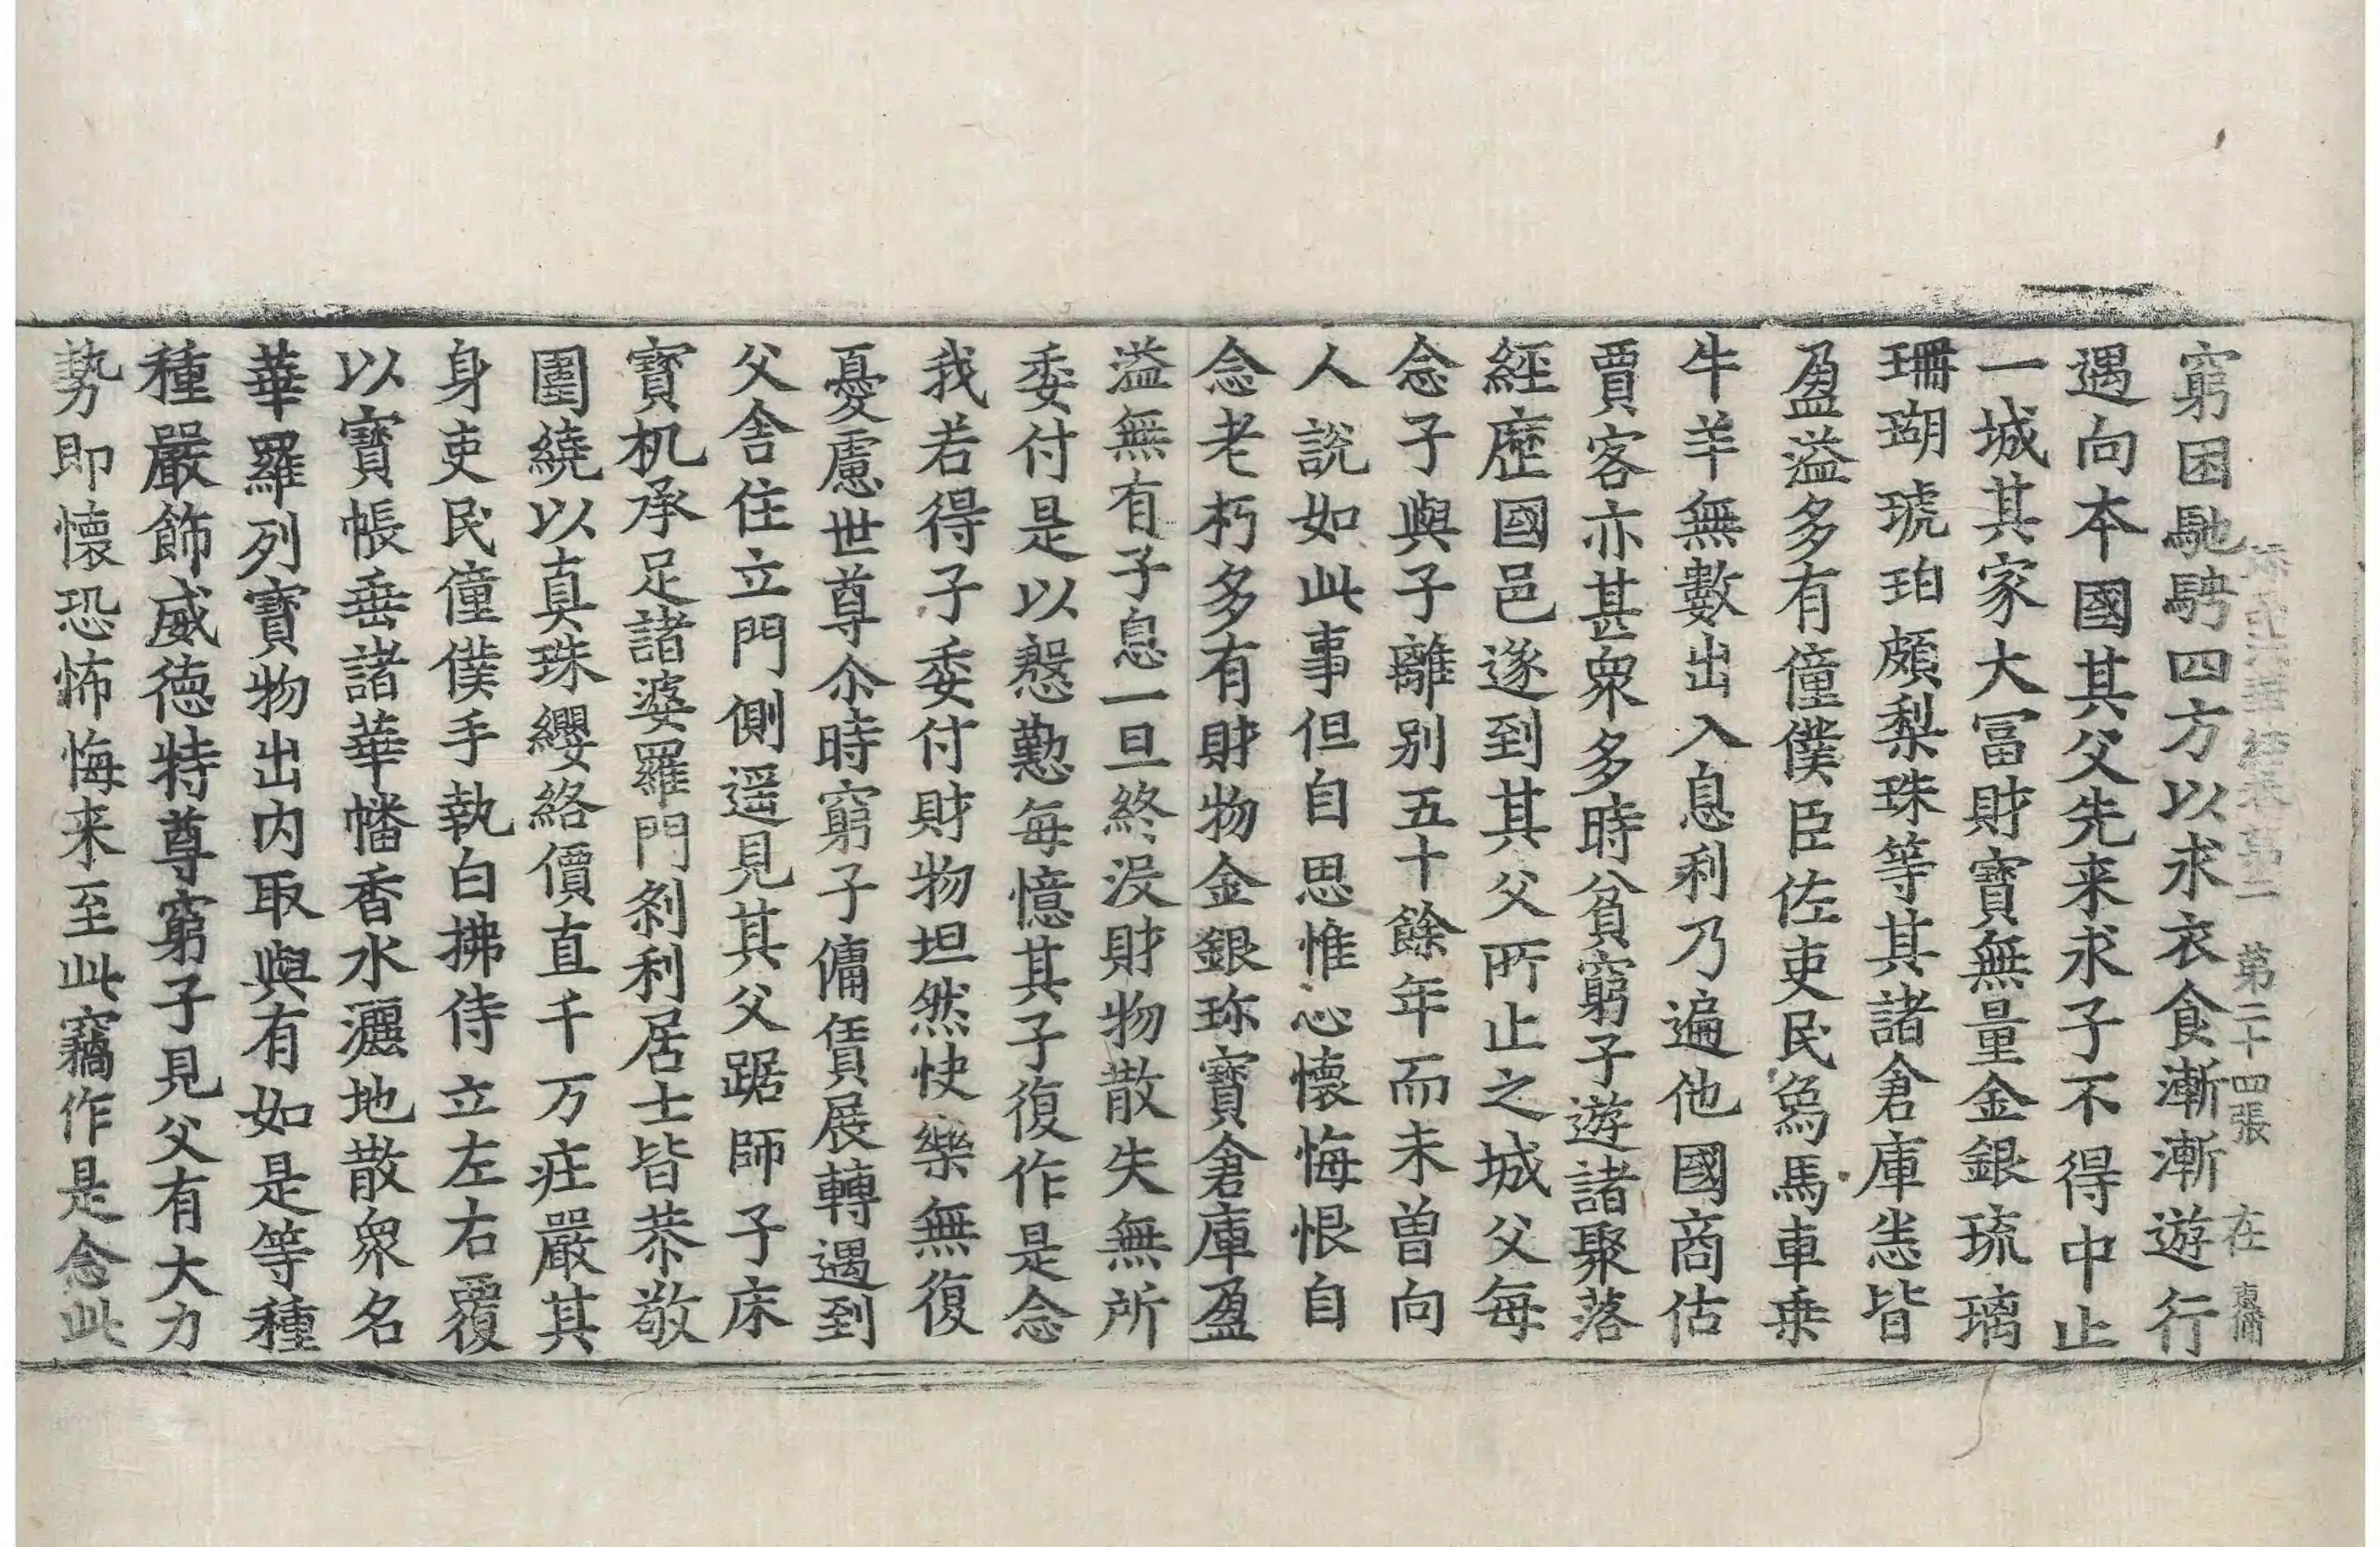 添品法華經卷第二　第二十四張　在
窮困馳騁四方以求衣食漸漸遊行
遇向本國其父先来求子不得中止
一城其家大冨財寶無量金銀琉璃
珊瑚琥珀頗梨珠等其諸倉庫悉皆
盈溢多有僮僕臣佐吏民烏馬車乗
牛羊無數出入息利乃遍他國商估
賈客亦甚衆多時貧窮子遊諸聚落
經歷國邑遂到其父所止之城父每
念子與子離別五十餘年而未曽向
人說如此事但自思惟心懷悔恨自
念老朽多有財物金銀珎寶倉庫盈
溢無有子息一旦終没財物散失無所
委付是以慇懃每憶其子復作是念
我若得子委付財物坦然快樂無復
憂慮世尊尒時窮子傭賃展轉遇到
父舎住立門側遥見其父踞師子床
寶机承足諸婆羅門刹利居士皆恭敬
圍繞以真珠纓絡價直千万莊嚴其
身吏民僮僕手執白拂侍立左右覆
以寶帳垂諸華幡香水灑地散衆名
華羅列寶物出内取與有如是等種
種嚴飾威德特尊窮子見父有大力
勢即懷恐怖悔来至此竊作是念此